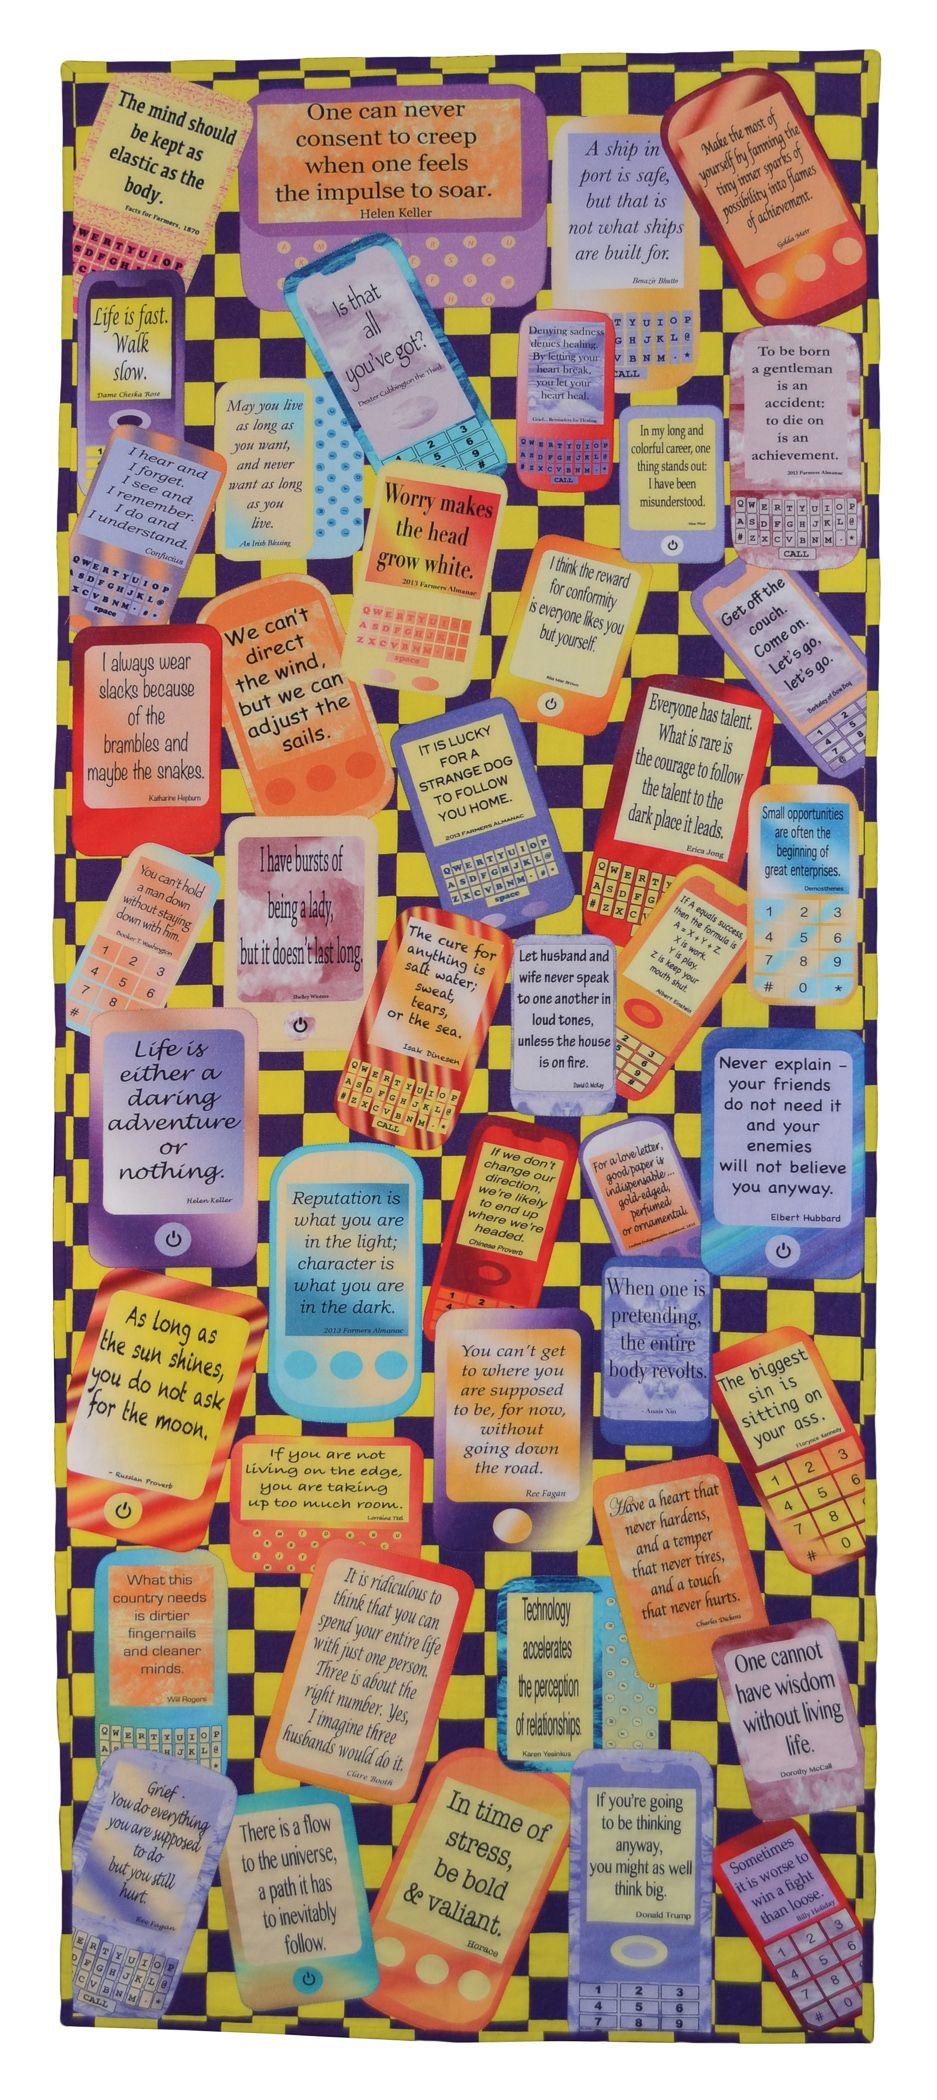 The mind should
be kept as
elastic as the
body.
Facts for Farmers, 1870
One can never
consent to creep
when one feels
the impulse to soar.
Helen Keller
A ship in
port is safe,
but that is
not what ships
are built for.
Benazir Bhutto
Make the most of
yourself by fanning the
tiny inner sparks of
possibility into flames
of achievement.
Golda Meir
Life is fast.
Walk
slow.
Dame Cheska Rose
Is that
all
you've got?
Dexter Cubbington the Third
Denying sadness
denies healing.
By letting your
heart break,
you let your
heart heal.
CALL
To be born
a gentleman
is an
accident;
to die on
is an
achievement.
2013 Farmers Almanac
CALL
May you live
as long as
you want,
and never
want as long
as you
live.
An Irish Blessing
In my long and
colorful career, one
thing stands out:
I have been
misunderstood.
I hear and
I forget.
I see and
I remember.
I do and
I understand.
Confucius
space
Worry makes
the head
grow white.
2013 Farmers Almanac
space
I think the reward
for conformity
is everyone likes you
but yourself.
Get off the
couch.
Come on.
Let's go,
let's go.
Berkeley at Dow Dog
I always wear
slacks because
of the
brambles and
maybe the snakes.
Katharine Hepburn
We can't
direct
the wind,
but we can
adjust the
sails.
IT IS LUCKY
FOR A
STRANGE DOG
TO FOLLOW
YOU HOME.
2013 FARMERS ALMANAC
space
Everyone has talent.
What is rare is
the courage to follow
the talent to the
dark place it leads.
Erica Jong
Small opportunities
are often the
beginning of
great enterprises.
Demosthenes
1 2 3
4 5 6
7 8 9
# 0 *
You can't hold
a man down
without staying
down with him.
Booker T. Washington
I have bursts of
being a lady,
but it doesn't last long.
Shelley Winters
The cure for
anything is
salt water;
sweat,
tears,
or the sea.
Isak Dinesen
CALL
Let husband and
wife never speak
to one another in
loud tones,
unless the house
is on fire.
David O. McKay
If A equals success,
then the formula is
A = X + Y + Z.
X is work.
Y is play.
Z is keep your
mouth shut.
Albert Einstein
Life is
either a
daring
adventure
or
nothing.
Helen Keller
Never explain –
your friends
do not need it
and your
enemies
will not believe
you anyway.
Elbert Hubbard
Reputation is
what you are
in the light;
character is
what you are
in the dark.
2013 Farmers Almanac
If we don't
change our
direction,
we're likely
to end up
where we're
headed.
Chinese Proverb
For a love letter,
good paper is
indispensable...
gold-edged,
perfumed
or ornamental.
When one is
pretending,
the entire
body revolts.
- Anais Nin
As long as
the sun shines,
you do not ask
for the moon.
- Russian Proverb
You can't get
to where you
are supposed
to be, for now,
without
going down
the road.
Ree Fagan
The biggest
sin is
sitting on
your ass.
Florynce Kennedy
If you are not
living on the edge,
you are taking
up too much room.
Have a heart that
never hardens,
and a temper
that never tires,
and a touch
that never hurts.
Charles Dickens
What this
country needs
is dirtier
fingernails
and cleaner
minds.
Will Rogers
It is ridiculous to
think that you can
spend your entire life
with just one person.
Three is about the
right number. Yes,
I imagine three
husbands would do it.
Clare Booth
Technology
accelerates
the perception
of relationships.
Karen Yesinkus
One cannot
have wisdom
without living
life.
Dorothy McCall
Grief.
You do everything
you are supposed
to do
but you still
hurt.
Ree Fagan
CALL
There is a flow
to the universe,
a path it has
to inevitably
follow.
In time of
stress,
be bold
& valiant.
Horace
If you're going
to be thinking
anyway,
you might as well
think big.
Donald Trump
1 2 3
4 5 6
7 8 9
Sometimes
it is worse to
win a fight
than loose.
Billy Holiday